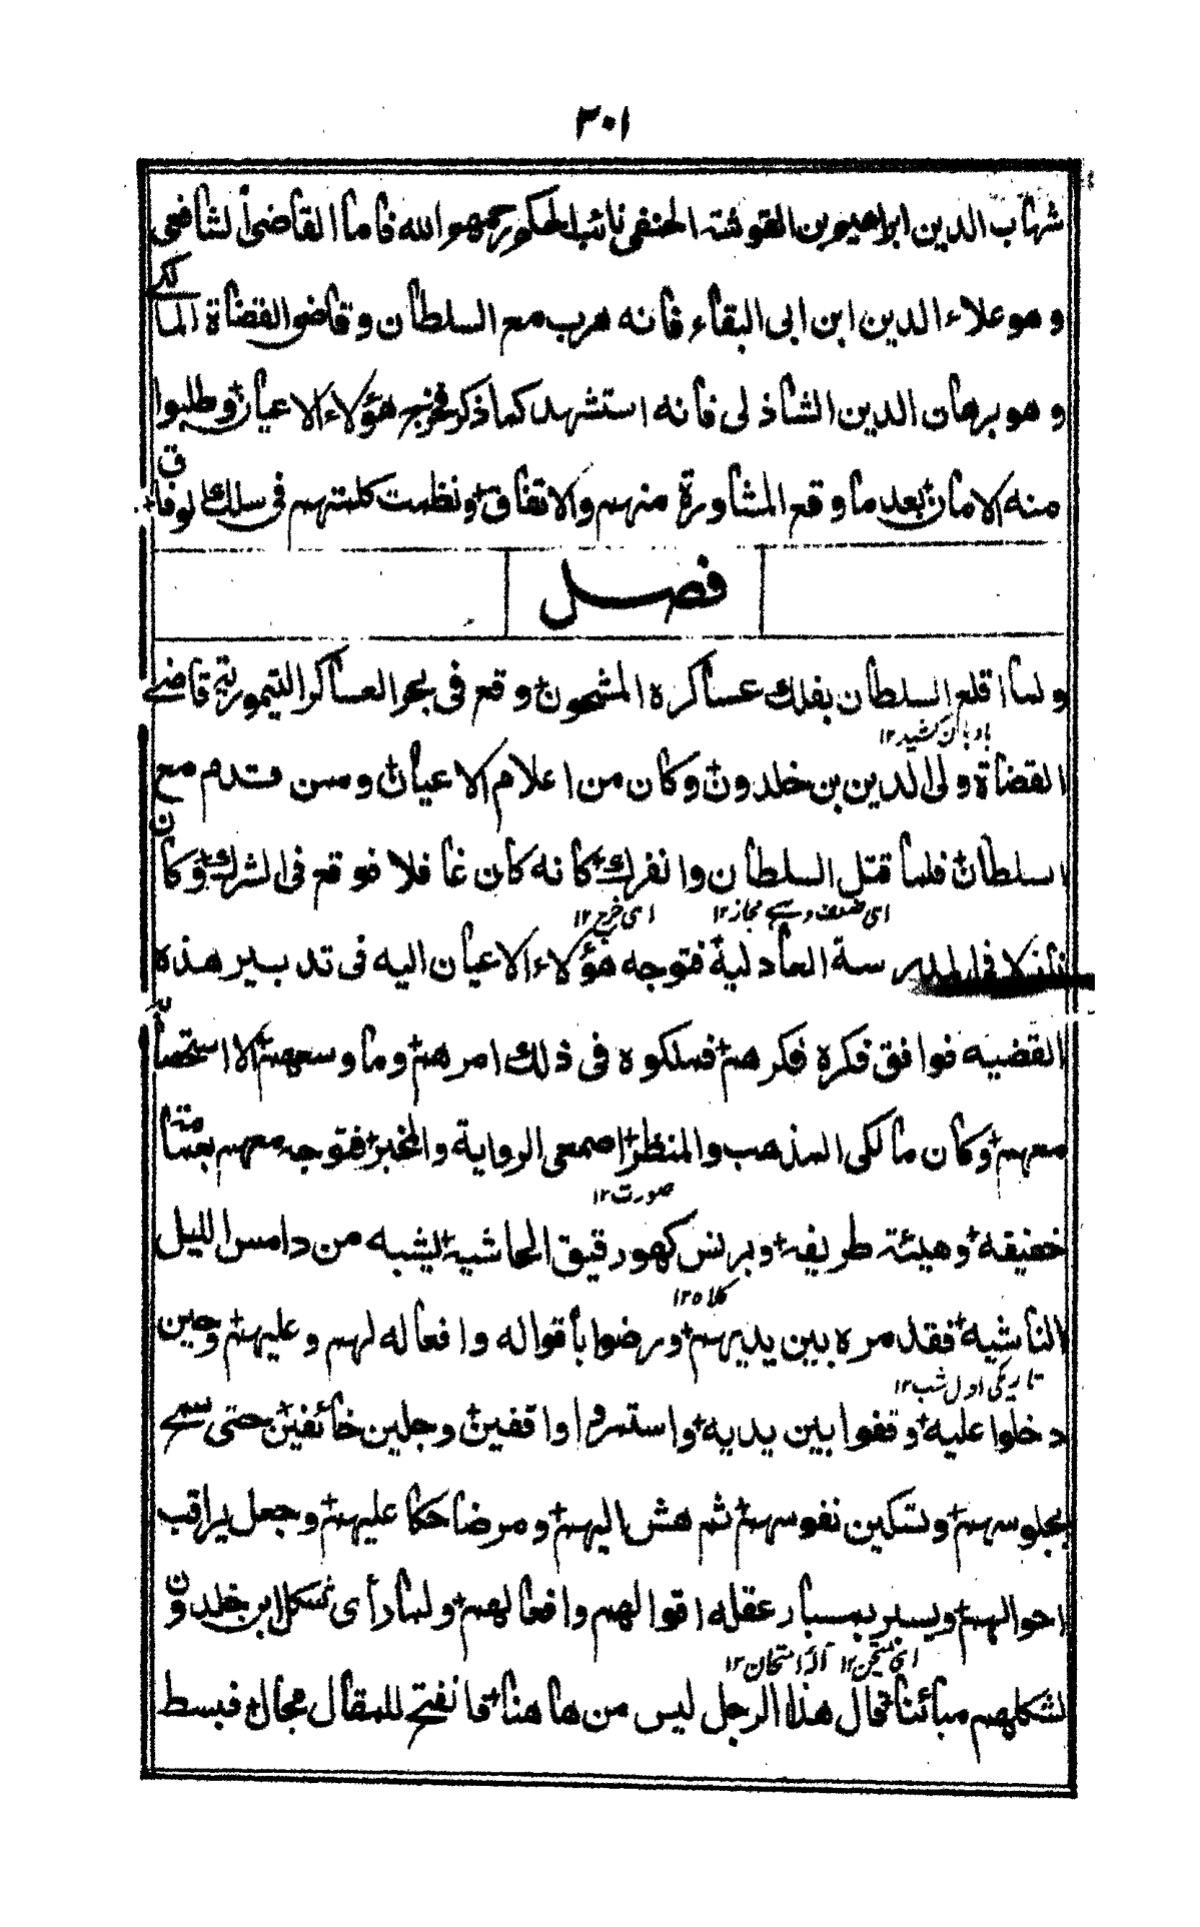 ٣٠١
شهاب الدين ابراهيم بن القوشة الحنفى نائب الحكم رحمهم الله فاما القاضى الشافعى
وهو علاء الدين ابن ابى البقاء فانه هرب مع السلطان وقاضى القضاة المالكے
وهو برهان الدين الشاذلى فانه استشهد كما ذكر فخرج هؤلاء الاعيان وطلبوا
منه الامان بعد ما وقع المشاورة منهم والاتفاق ونظمت كلمتهم فى سلك الوفاق
فصل
ولما اقلع السلطان بفلك عساكره المشحون وقع فى بحر العساكر التيمورية قاضے
بادبان كشيد ١٢
القضاة ولى الدين بن خلدون وكان من اعلام الاعيان ومن قدم مع
السلطان فلما قتل السلطان وانفرك كانه كان غافلا فوقع فى الشرك وكان
اى ضعف وسے مجاز ١٢ اى خرج ١٢
نازلا فى المدرسة العادلية فتوجه هؤلاء الاعيان اليه فى تدبير هذه
القضيه فوافق فكره فكرهم فملكوه فى ذلك امرهم وما وسعهم الا استصحابه
معهم وكان مالكى المذهب والمنظر اصمعى الرواية والمخبر فتوجه معهم بعمامة
صورت ١٢
خفيفه وهيئة طريفه وبرنس كهو رقيق الحاشيه يشبه من دامس الليل
كلاه ١٢
الناشيه فقدموه بين يديهم ورضوا بأقواله وافعاله لهم وعليهم وحين
تاريكى اول شب ١٢
دخلوا عليه وقفوا بين يديه واستمروا واقفين وجلين خائفين حتى سمح
بجلوسهم وتسكين نفوسهم ثم هش اليهم ومر ضاحكا عليهم وجعل يراقب
احوالهم ويسبر بمسبار عقله اقوالهم وافعالهم ولما رأى شكل ابن خلدون
اى يمتحن ١٢ آلۂ امتحان ١٢
لشكلهم مبائنا قال هذا الرجل ليس من هاهنا فانفتح للمقال مجال فبسط